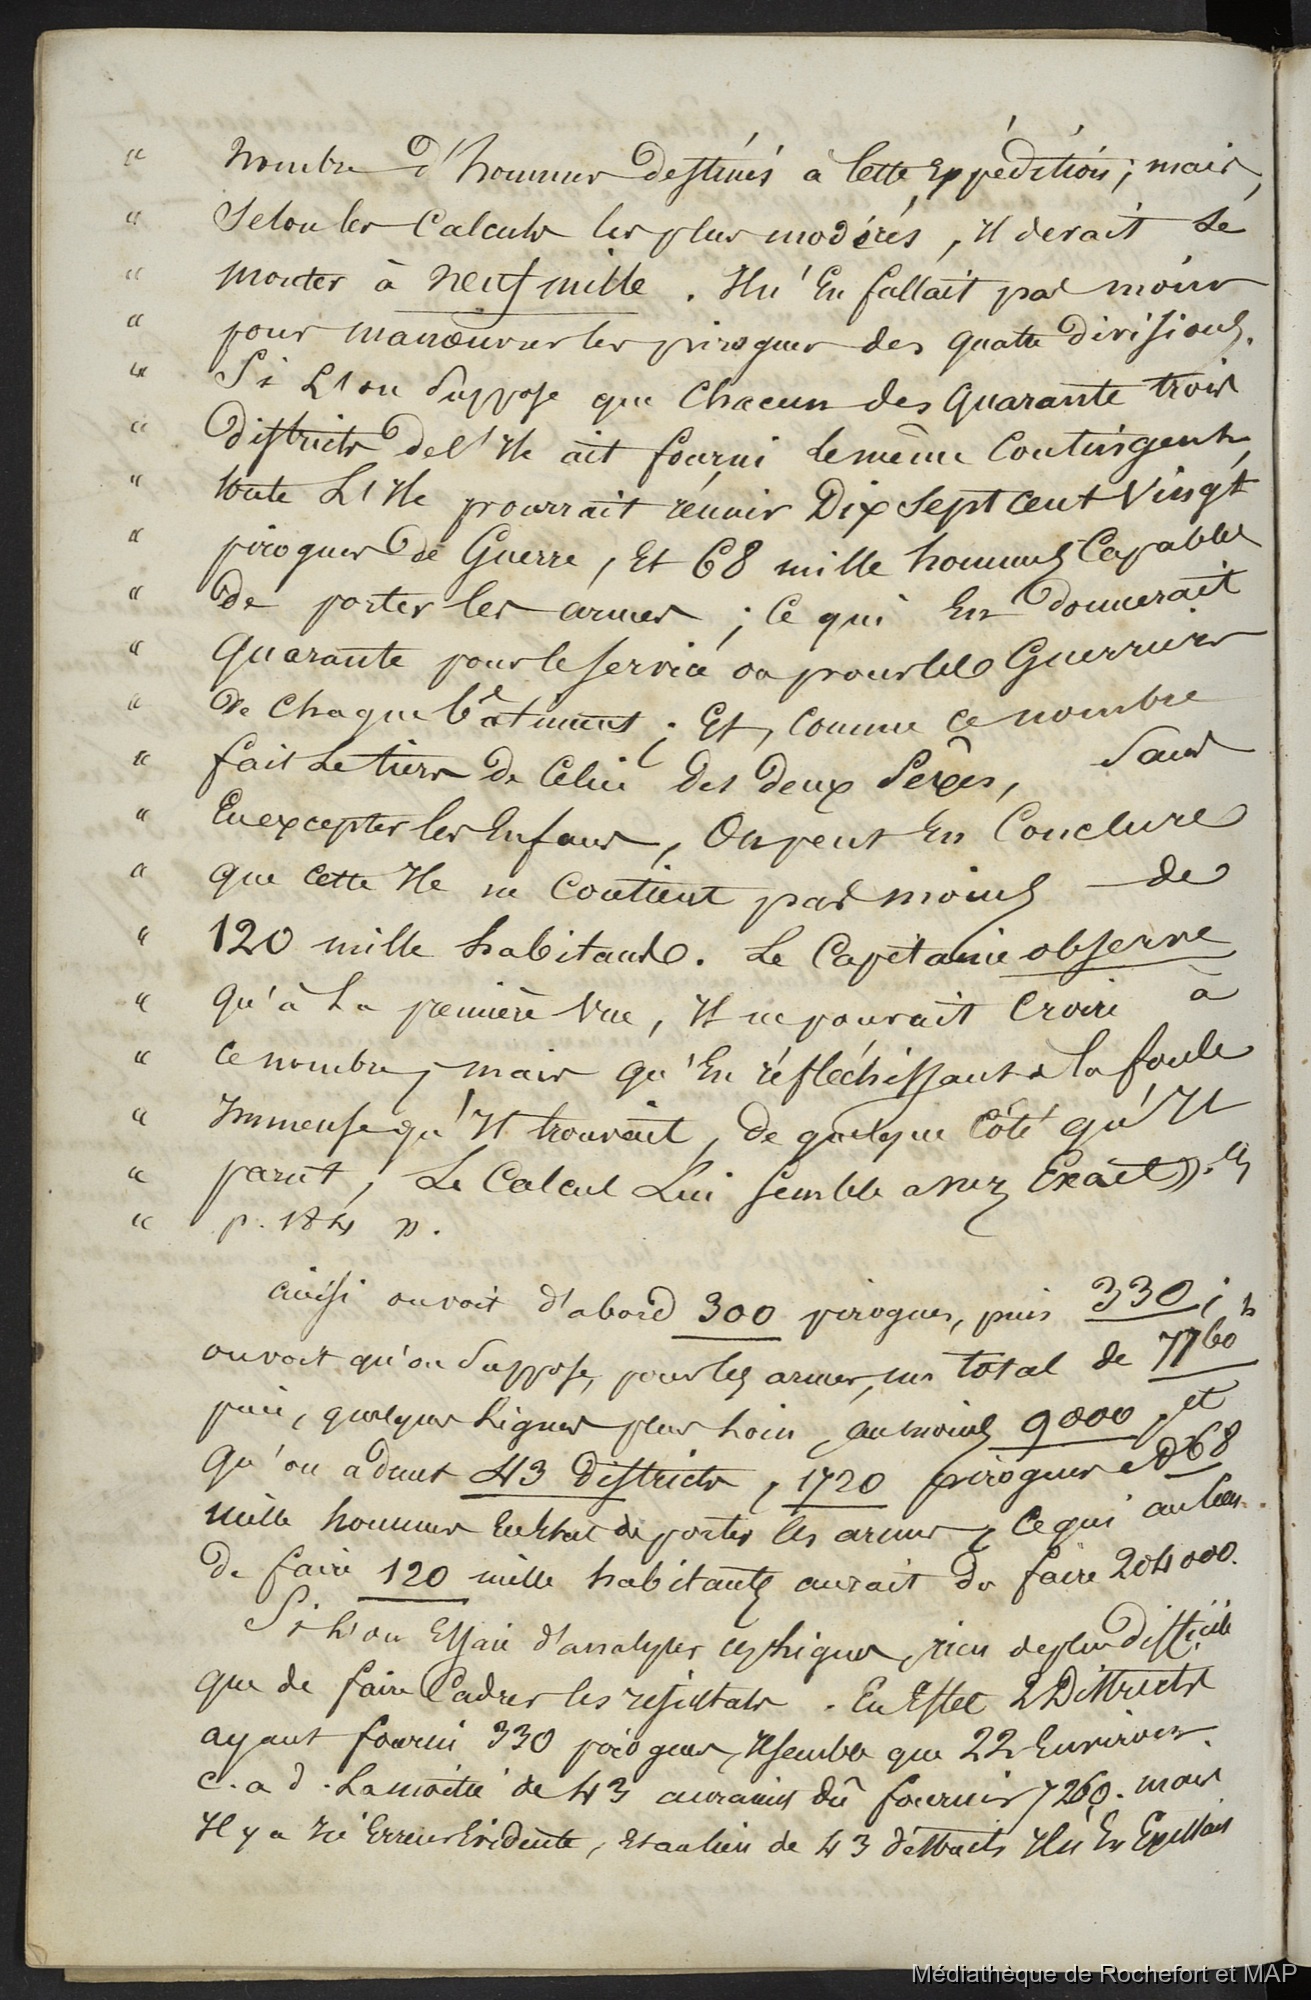 " nombre d'hommes destinés à cette Expédition ; mais,
" Selon les Calculs les plus modérés, Il devait se
" monter à neuf mille. Il n'En fallait pas moins
" pour manœuvrer les pirogues des quatre Divisions.
" Si L'on Suppose que Chacun des Quarante trois
" Districts de l'Ile ait fourni le même Contingent,
" toute L'Ile pourrait réunir Dix Sept cent Vingt
" pirogues de Guerre, Et 68 mille hommes Capables
" de porter les armes ; Ce qui En Donnerait
" Quarante pour le Service ou pour les Guerriers
" de Chaque bâtiment ; Et, Comme Ce nombre
" fait Le tiers de Celui des deux Sexes, Sans
" En excepter les Enfans, On peut En Conclure
" que Cette Ile ne Contient pas moins de
" 120 mille habitans. Le Capitaine observe
" qu'à La première Vue, Il ne pouvait Croire à
" Ce nombre ; mais qu'En réfléchissant à la foule
" Immense qu'Il trouvait, de quelque Côté qu'Il
" parut, Le Calcul Lui semble assez Exact ».
" p. 184 ».
ainsi on voit d'abord 300 pirogues, puis 330 ;
on voit qu'on Suppose, pour les armer, un total de 7760
puis, quelques Lignes plus Loin, au moins 9000, et
qu'on admet 43 Districts, 1720 pirogues et 68
mille hommes En Etat de porter les armes ; Ce qui au lieu
de faire 120 mille habitants aurait du faire 204000.
Si L'on Essaie d'analyser ces Lignes, rien de plus difficile
que de faire Cadrer les résultats. En Effet 2 Districts
ayant fourni 330 pirogues, Il semble que 22 Environ
c. a d. La moitié de 43 auraient dû fournir 7260. mais
Il y a Ici Erreur Evidente, Et au lieu de 43 districts Il n'En Existait